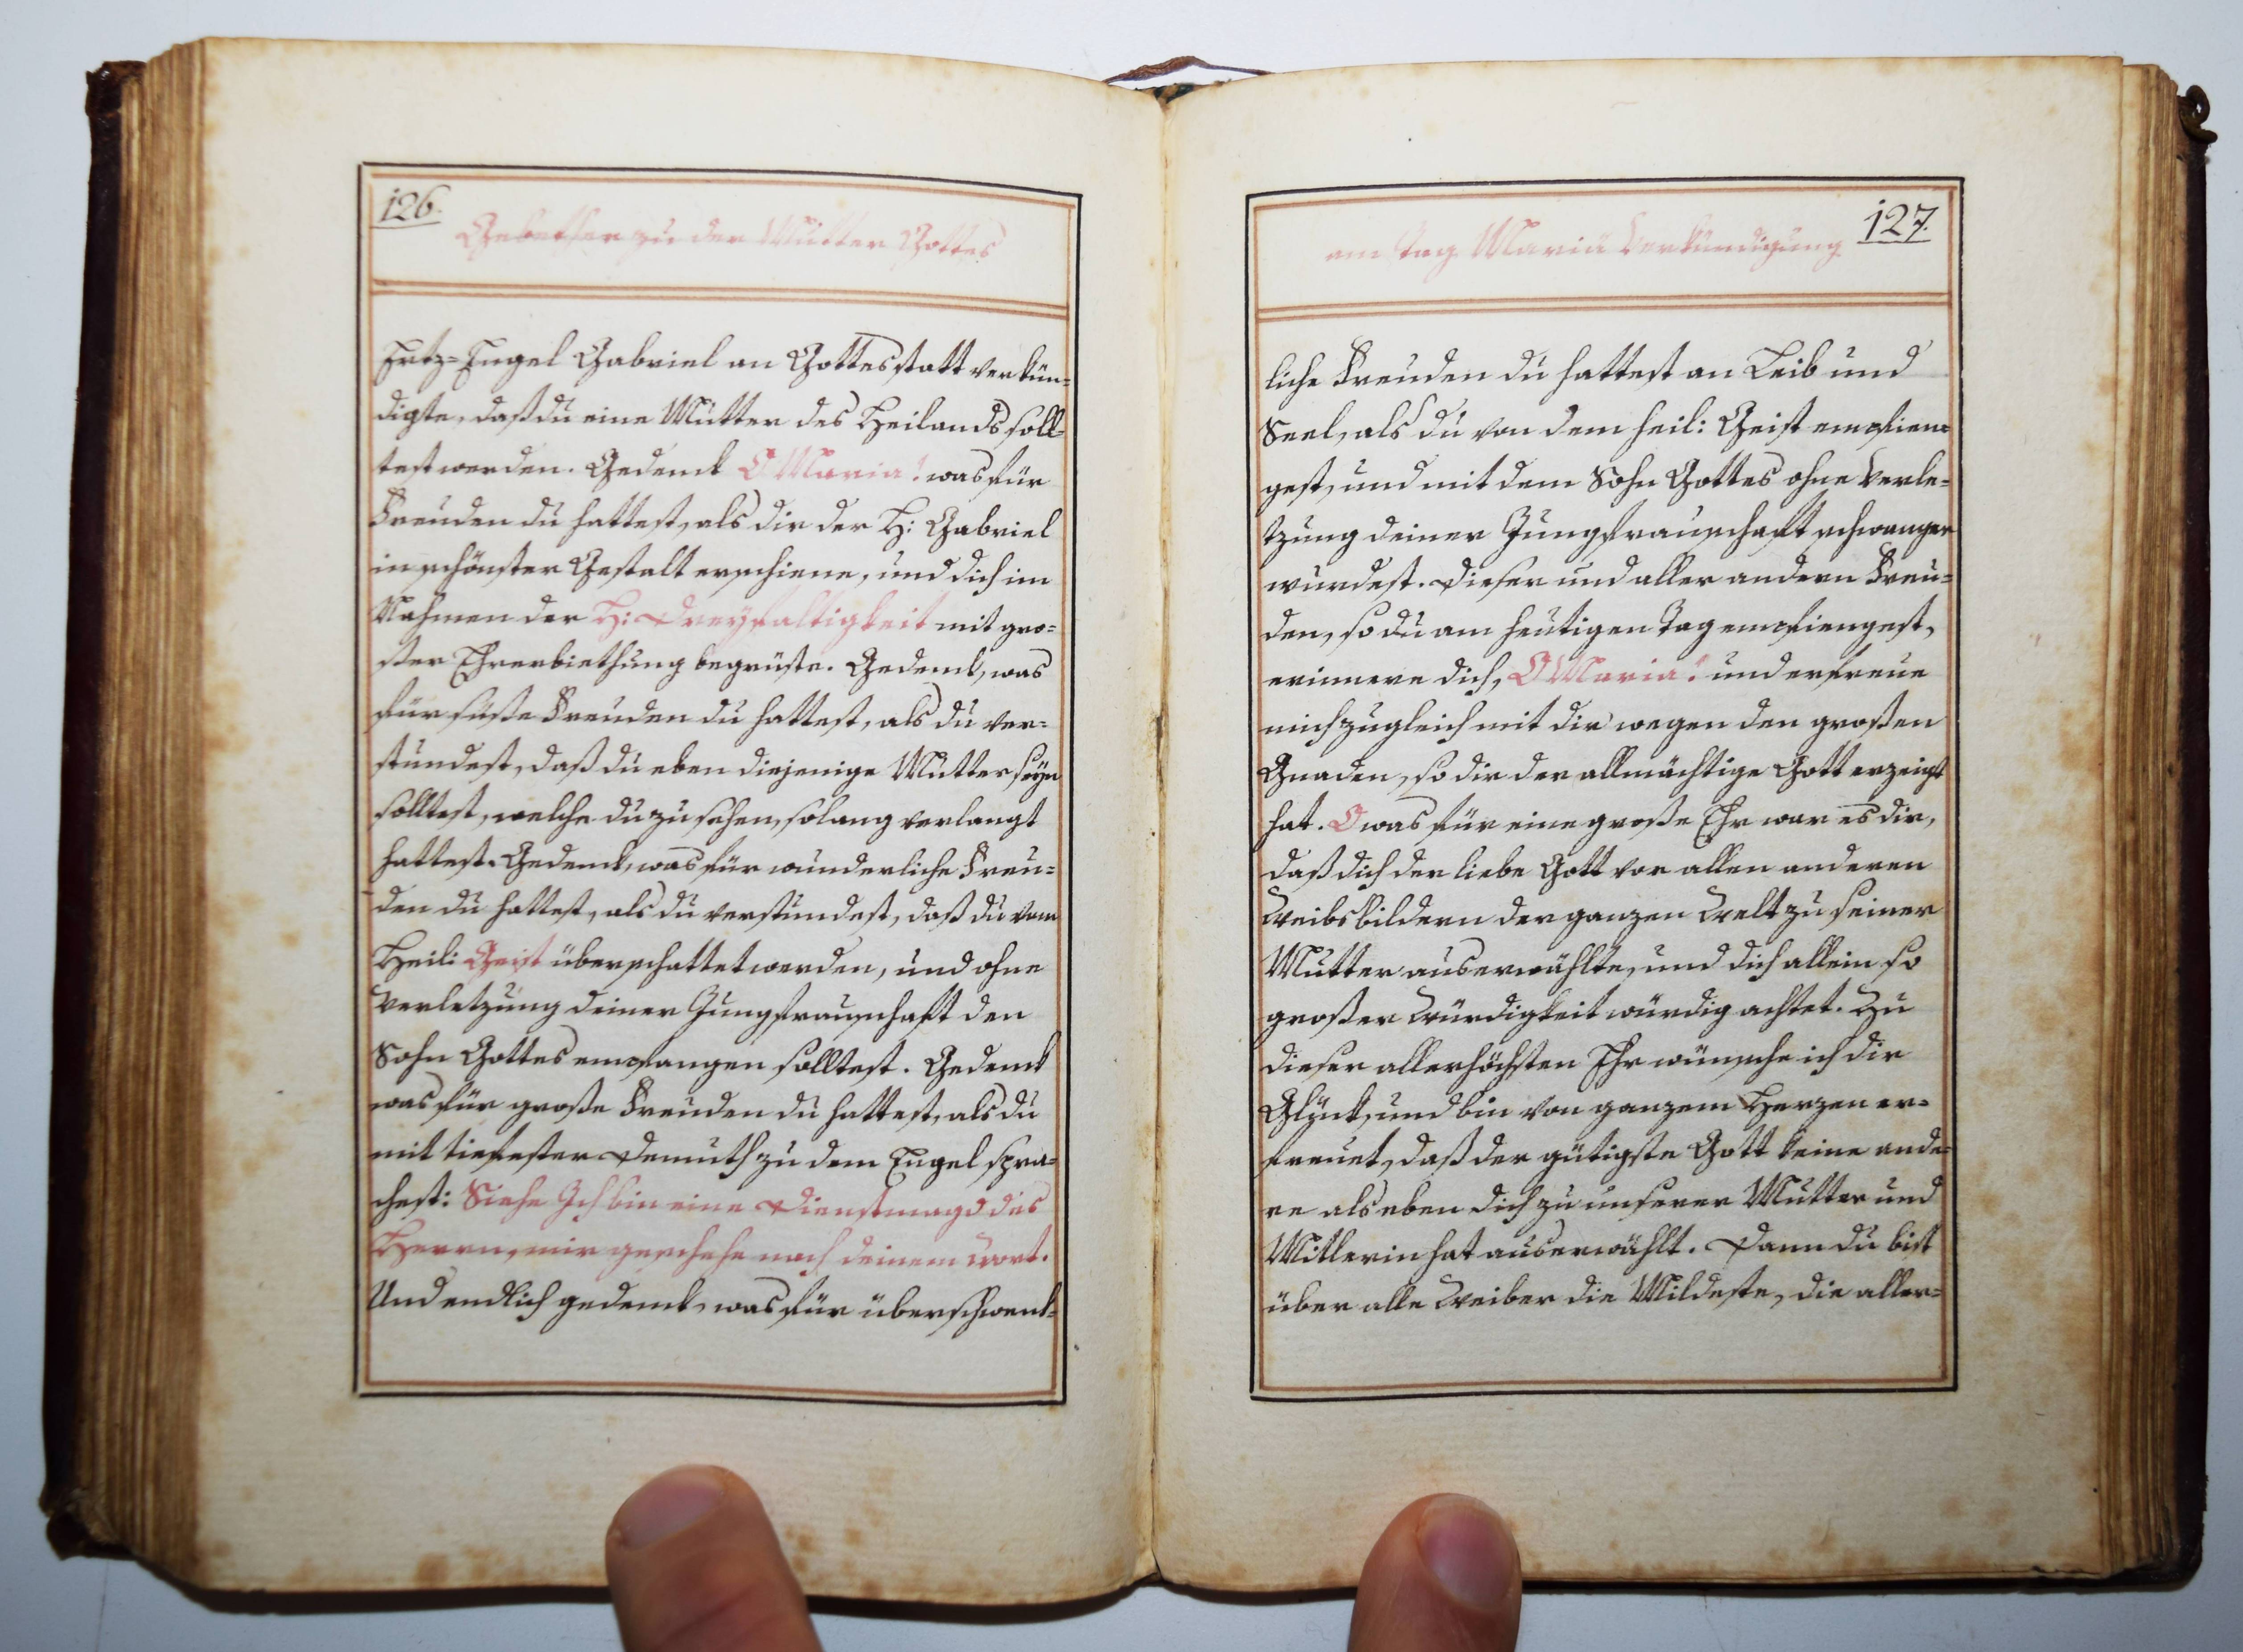 126.
Gebether zu der Mutter Gottes
Ertz-Engel Gabriel an Gottes statt verkün-
digte, daß du eine Mutter des Heilands soll-
test werden. Gedenck O Maria! was für
Freuden du hattest, als dir der H: Gabriel
in schönster Gestalt erschiene, und dich im
Nahmen der H: Dreyfaltigkeit mit gro-
ster Ehrerbiethung begrüste. Gedenck, was
für süsse Freuden du hattest, als du ver-
stundest, daß du eben diejenige Mutter seyn
solltest, welche du zu sehen, solang verlangt
hattest. Gedenck, was für wunderliche Freu-
den du hattest, als du verstundest, daß du vom
Heil: Geist überschattet werden, und ohne
Verletzung deiner Jungfrauschaft den
Sohn Gottes empfangen solltest. Gedenck
was für große Freuden du hattest, als du
mit tiefester Demuth zu dem Engel spra-
chest: Siehe Ich bin eine Dienstmagd des
Herrn, mir geschehe nach deinem wort.
Und endlich gedenck, was für überschwenk-
127.
am Tag Mariä Verkündigung
liche Freuden du hattest an Leib und
Seel, als du von dem heil: Geist empfien-
gest, und mit dem Sohn Gottes ohne Verle-
tzung deiner Jungfrauschaft schwanger
wurdest. Dieser und aller andern Freu-
den, so du am heutigen Tag empfiengest,
erinnere dich, O Maria! und erfreue
mich zugleich mit dir wegen den großen
Gnaden, so dir der allmächtige Gott erzeigt
hat. O was für eine große Ehr war es dir,
daß dich der liebe Gott vor allen anderen
Weibsbildern der ganzen Welt zu seiner
Mutter auserwählte, und dich allein so
großer Würdigkeit würdig achtet. Zu
dieser allerhöchsten Ehr wünsche ich dir
Glück, und bin von ganzem Herzen er-
freuet, daß der gütigste Gott keine ande-
re als eben dich zu unserer Mutter und
Mitlerin hat auserwählt. Dann du bist
über alle Weiber die Mildeste, die aller-